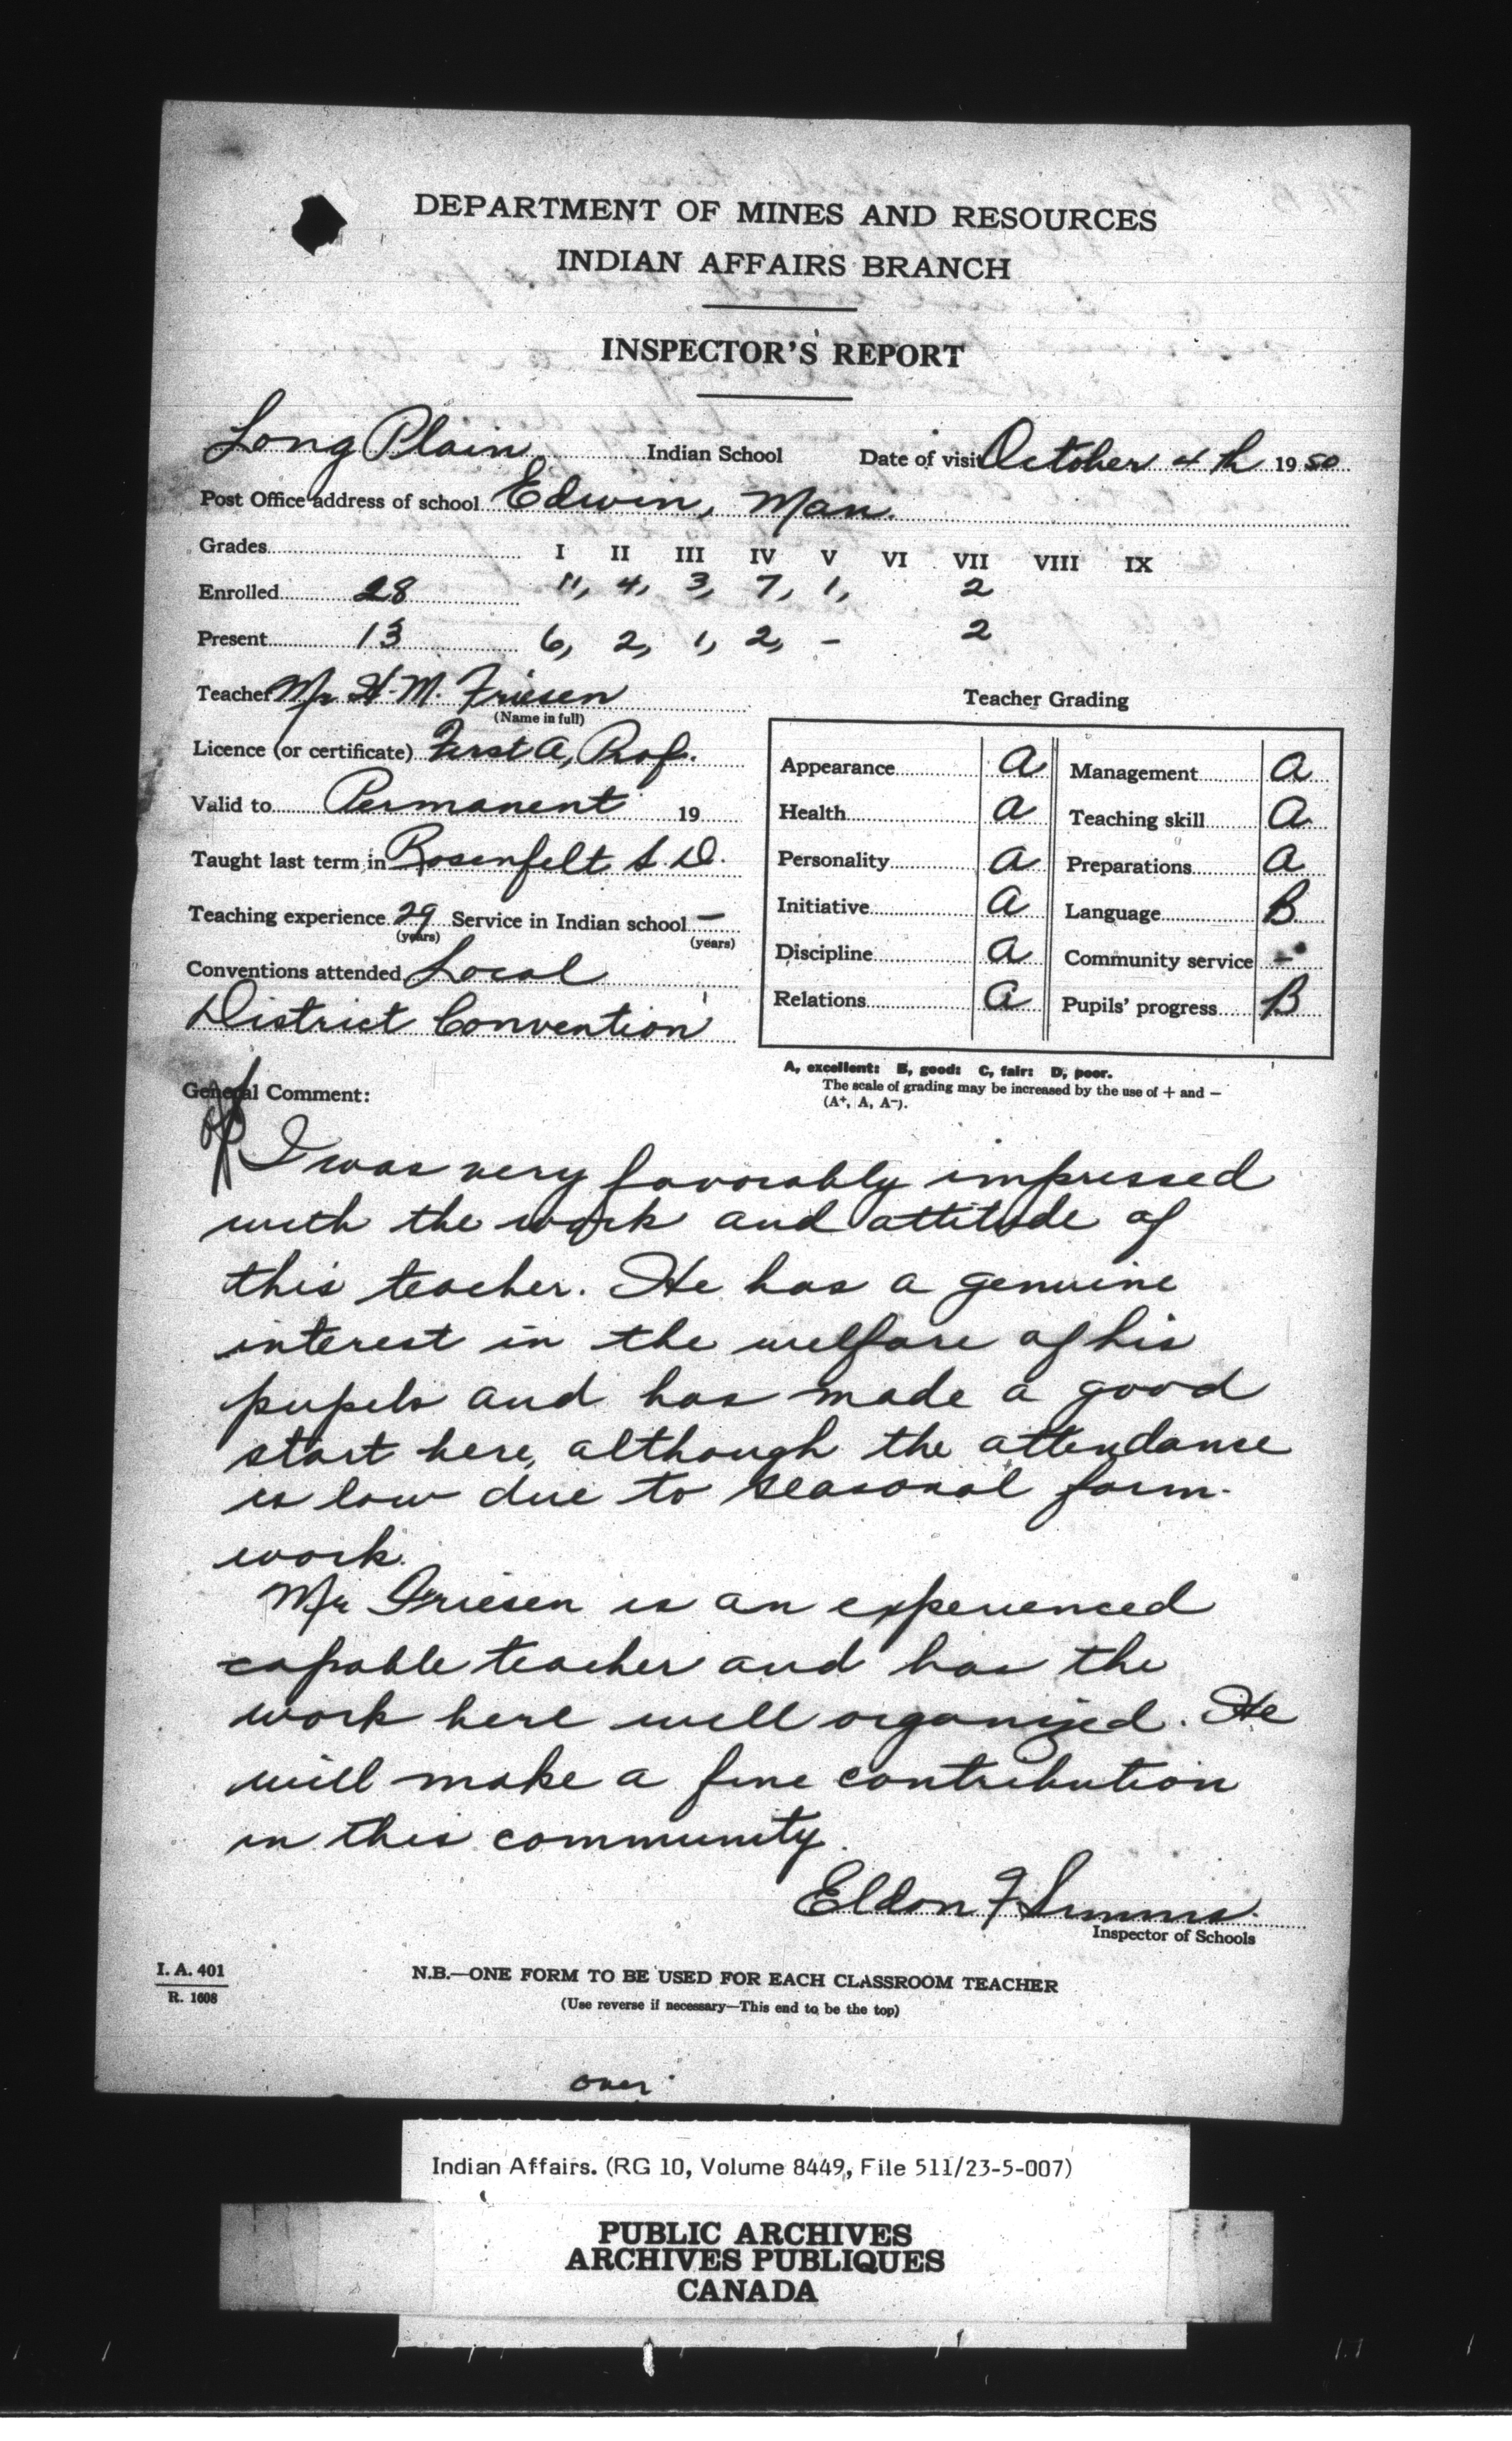 DEPARTMENT OF MINES AND RESOURCES
INDIAN AFFAIRS BRANCH
INSPECTOR'S REPORT
Long Plain Indian School Date of visit October 4th 1950
Post Office address of school Edwin, Man.
Grades I II III IV V VI VII VIII IX
Enrolled 28 11, 4, 3, 7, 1, 2
Present 13 6, 2, 1, 2, – 2
Teacher Mr H. M. Friesen
(Name in full)
Licence (or certificate) First A, Prof.
Valid to Permanent 19
Taught last term in Rosenfelt S. D.
Teaching experience 29 Service in Indian school –
(years) (years)
Conventions attended Local
District Convention
Teacher Grading
Appearance A Management A
Health A Teaching skill A
Personality A Preparations A
Initiative A Language B
Discipline A Community service –
Relations A Pupils' progress B
A, excellent: B, good: C, fair: D, poor.
The scale of grading may be increased by the use of + and –
(A+, A, A–).
General Comment:
I was very favorably impressed
with the work and attitude of
this teacher. He has a genuine
interest in the welfare of his
pupils and has made a good
start here, although the attendance
is low due to seasonal farm-
work.
Mr Friesen is an experienced
capable teacher and has the
work here well organized. He
will make a fine contribution
in this community.
Eldon F Simms.
Inspector of Schools
I. A. 401
R. 1608
N.B.—ONE FORM TO BE USED FOR EACH CLASSROOM TEACHER
(Use reverse if necessary—This end to be the top)
over
Indian Affairs. (RG 10, Volume 8449, File 511/23-5-007)
PUBLIC ARCHIVES
ARCHIVES PUBLIQUES
CANADA